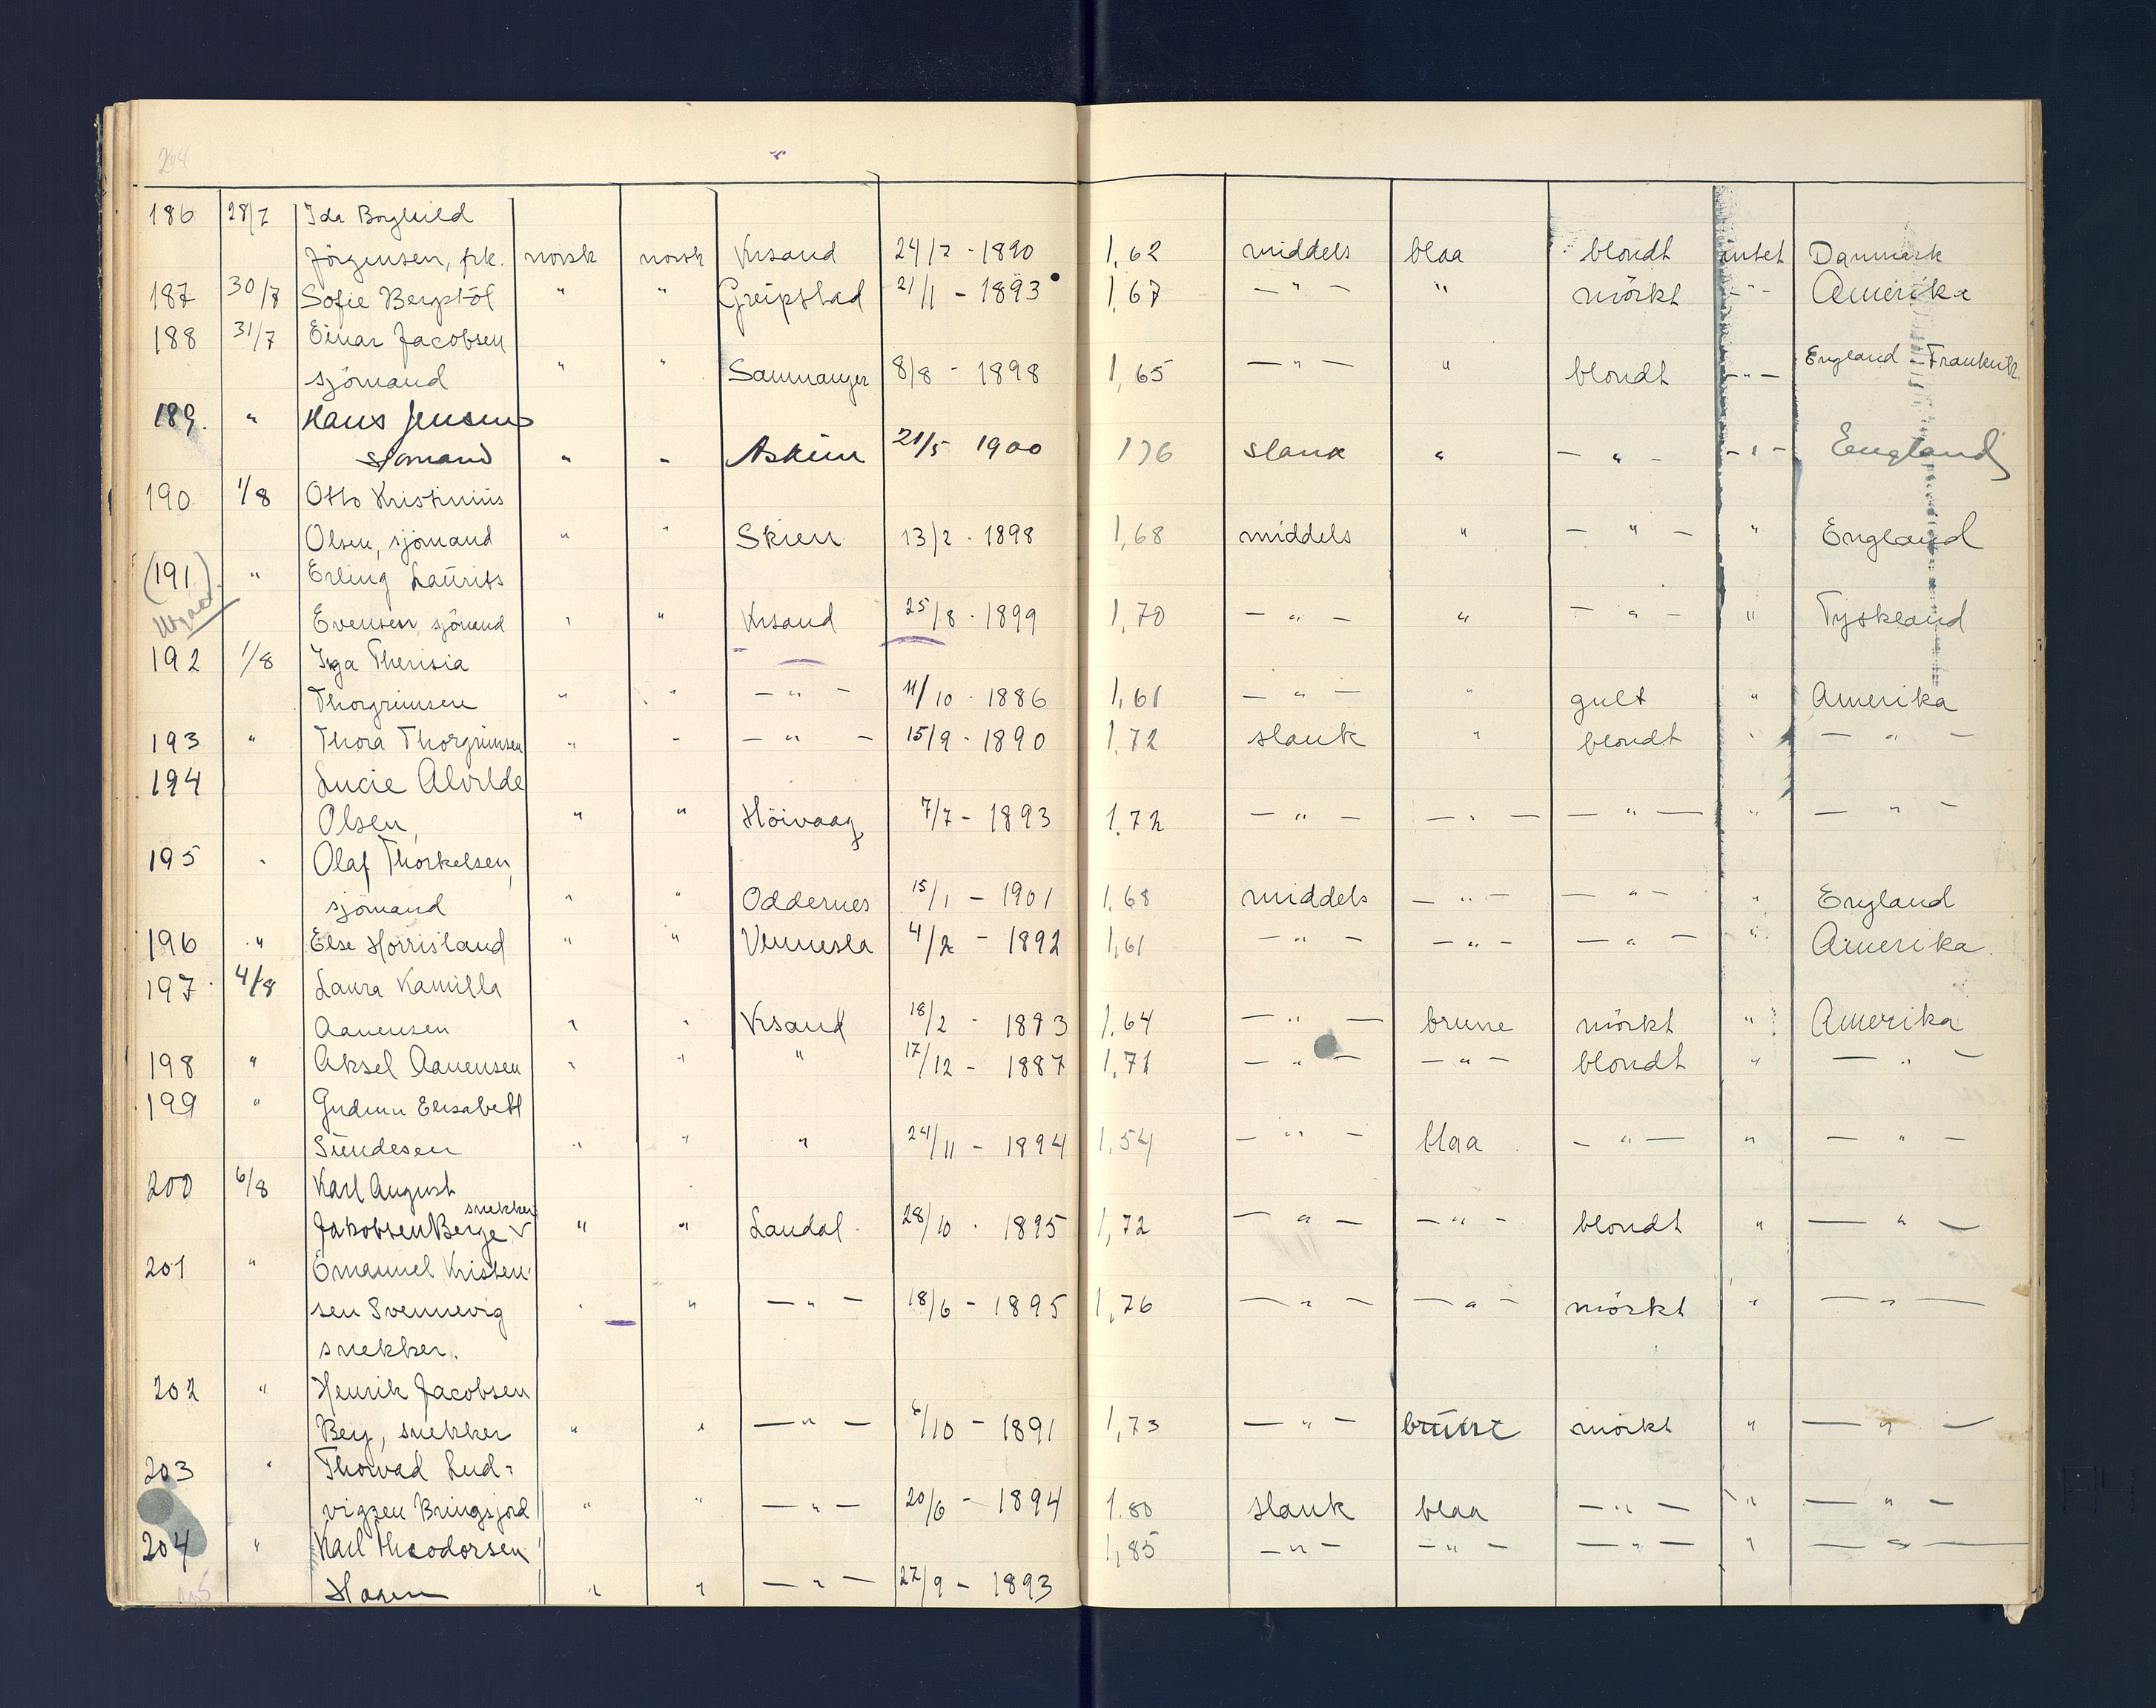 204
186 28/7 Ida Borghild
Jörgensen, frk. norsk norsk Krsand 24/2 - 1890 1,62 middels blaa blondt intet Danmark
187 30/7 Sofie Bergstöl " " Greipstad 21/1 - 1893 1,67 — " — " mörkt — " — Amerika
188 31/7 Einar Jacobsen
sjömand " " Sammanger 8/8 - 1898 1,65 — " — " blondt — " — England Frankrik
189. " Hans Jensen
sjömand " " Askim 21/5 1900 176 slank " — " — — " — England
190 1/8 Otto Kristinius
Olsen, sjömand " " Skien 13/2 - 1898 1,68 middels " — " — " England
(191) " Erling Laurits
Evensen, sjömand " " Krsand 25/8 - 1899 1,70 — " — " — " — " Tyskland
192 1/8 Inga Therisia
Thorgrimsen " " — " — 11/10 - 1886 1,61 — " — " gult " Amerika
193 " Thora Thorgrimsen " " — " — 15/9 - 1890 1,72 slank " blondt " — " —
194 Lucie Alvilde
Olsen, " " Höivaag 7/7 - 1893 1.72 — " — — " — — " — " — " —
195 " Olaf Thorkelsen,
sjömand " " Oddernes 15/1 - 1901 1,68 middels — " — — " — " England
196 " Else Horrisland " " Vennesla 4/2 - 1892 1,61 — " — — " — — " — " Amerika
197 4/8 Laura Kamilla
Aanensen " " Krsand 18/2 - 1893 1.64 — " — brune mörkt " Amerika
198 " Aksel Aanensen " " " 17/12 - 1887 1,71 — " — — " — blondt " — " —
199 " Gudrun Elisabeth
Sundesen " " " 24/11 - 1894 1,54 — " — blaa — " — " — " —
200 6/8 Karl August
snekker
Jakobsen Berge √ " " Laudal 28/10 - 1895 1,72 — " — — " — blondt " — " —
201 " Emanuel Kristen-
sen Svennevig " " — " — 18/6 - 1895 1,76 — " — — " — mörkt " — " —
snekker.
202 " Henrik Jacobsen
Berg, snekker " " — " — 6/10 - 1891 1,73 — " — brune mörkt " — " —
203 " Thorvad Lud-
vigsen Bringsjord " " — " — 20/6 - 1894 1.80 slank blaa — " — " — " —
204 " Karl Theodorsen 1,85 — " — — " — — " — " — " —
Hagen " " — " — 27/9 - 1893
205